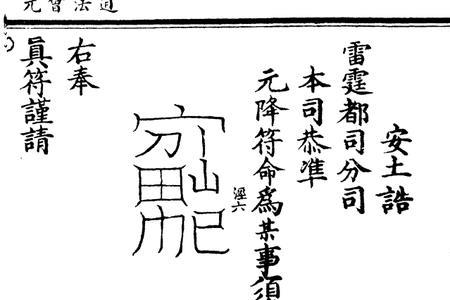 道法會元
安土誥
雷霆都司分司
本司恭準
元降符命爲某事須
涇六
右奉
眞符謹請